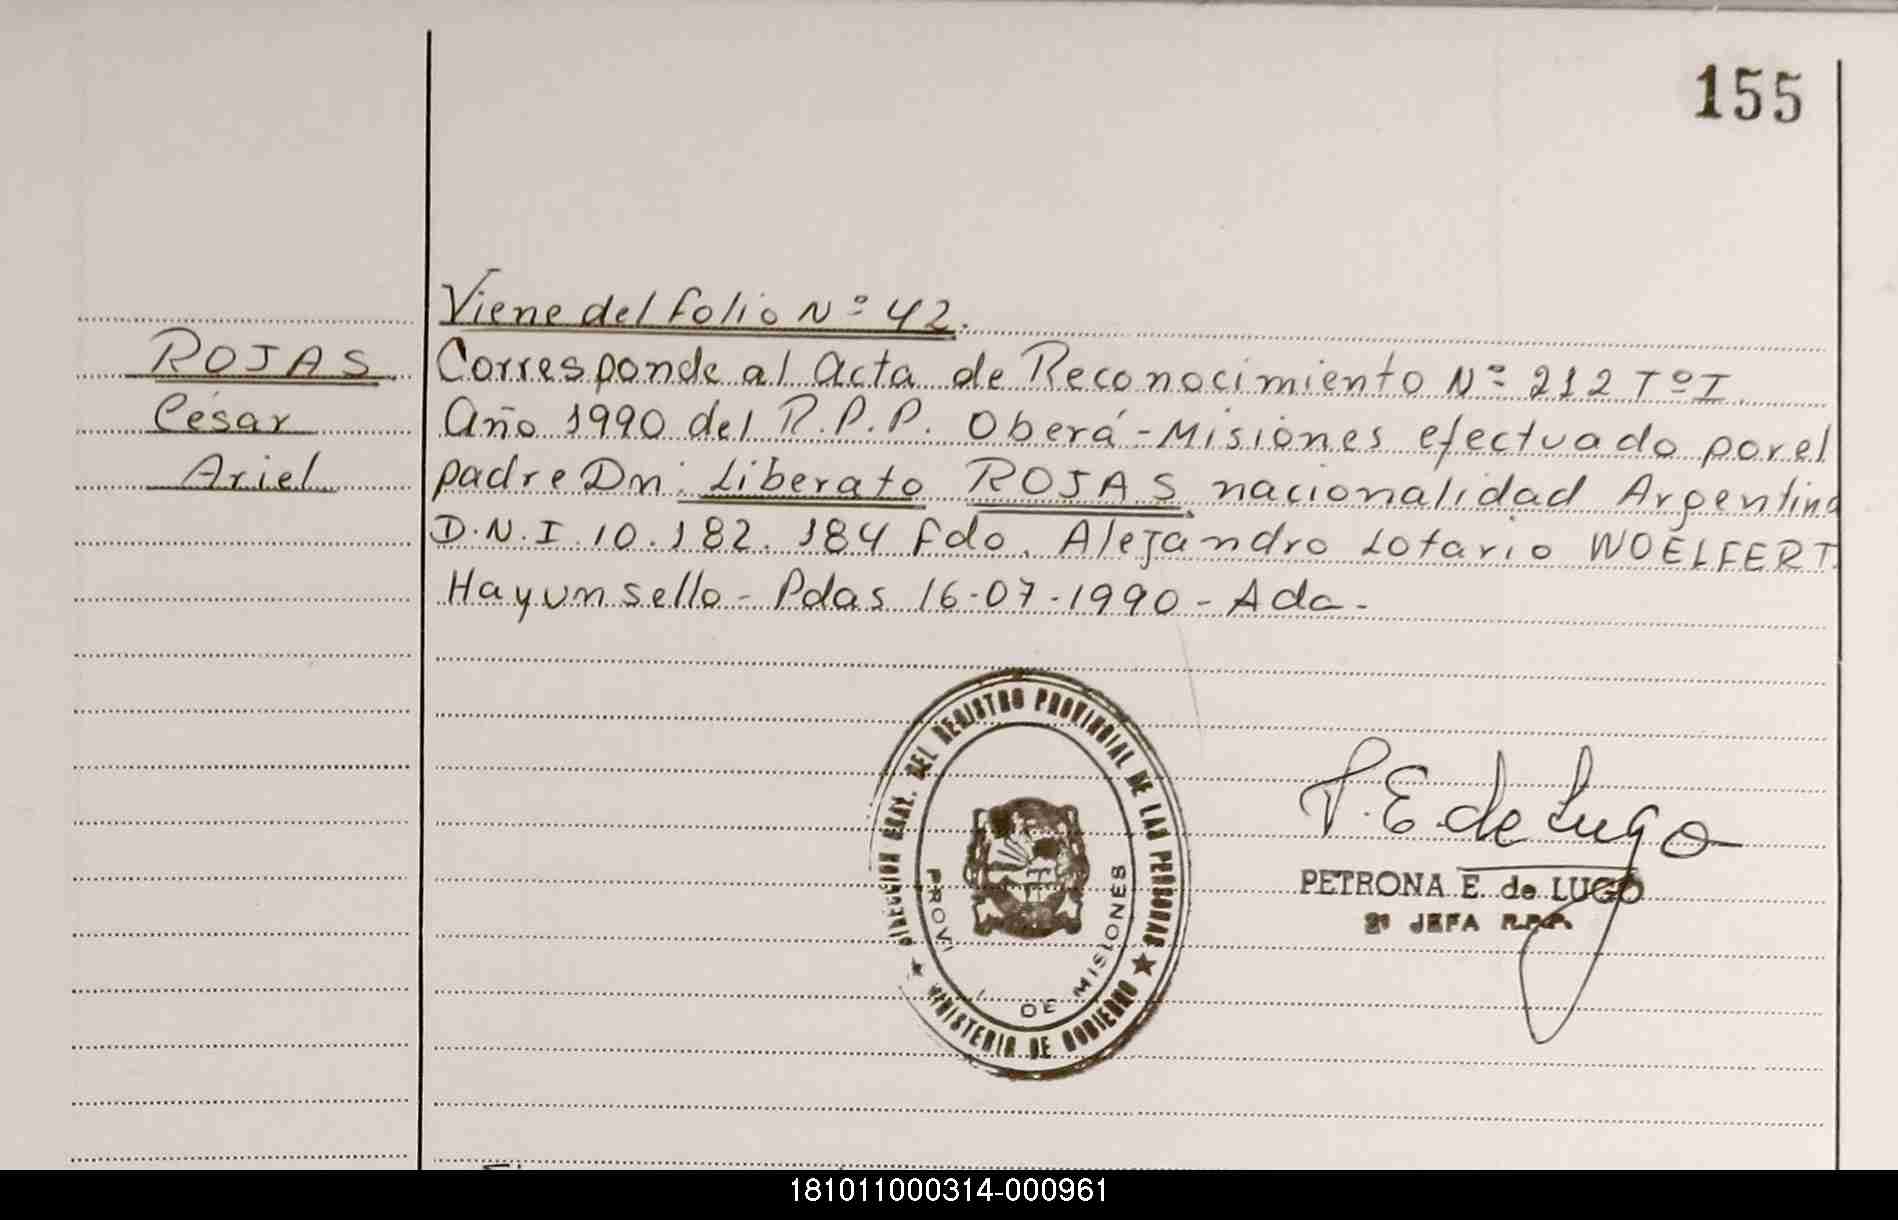 155
Viene del folio Nº 42.
ROJAS
César
Ariel
Corresponde al acta de Reconocimiento Nº 212 TºI
Año 1990 del R.P.P. Oberá - Misiones efectuado por el
padre Dn: Liberato ROJAS nacionalidad Argentina
D.N.I. 10.182.184 fdo. Alejandro Lotario WOELFERT.
Hay un sello - Pdas 16-07-1990 - Ada.
DIRECCION GRAL. DEL REGISTRO PROVINCIAL DE LAS PERSONAS
MINISTERIO DE GOBIERNO
DE MISIONES
P. E. de Lugo
PETRONA E. de LUGO
2º JEFA R.P.P.
181011000314-000961